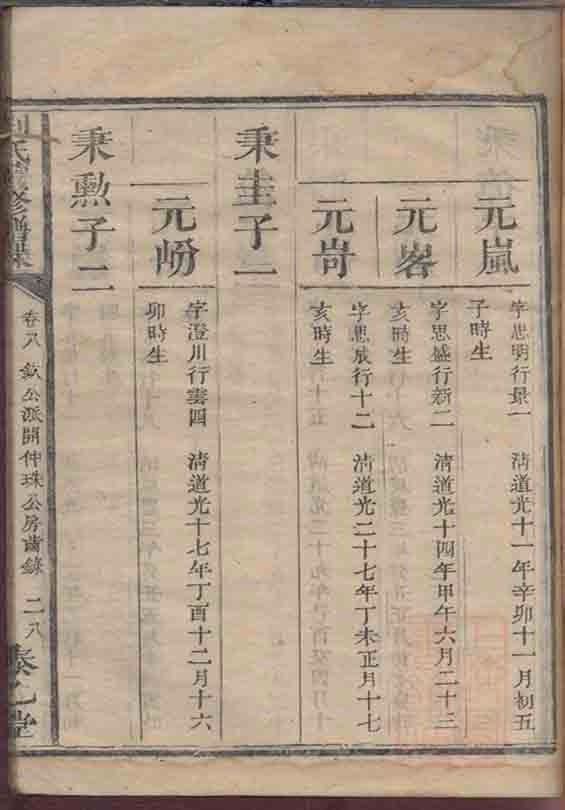 元嵐
字思明行景一 清道光十一年辛卯十一月初五
子時生
元峉
字思盛行新二 清道光十四年甲午六月二十三
亥時生
元岢
字思放行十二 清道光二十七年丁未正月十七
亥時生
秉圭子一
元岎
字澄川行雲四 清道光十七年丁酉十二月十六
卯時生
秉勲子二
卷八 欽公派開仲珠公房齒錄 二八 泰乙堂